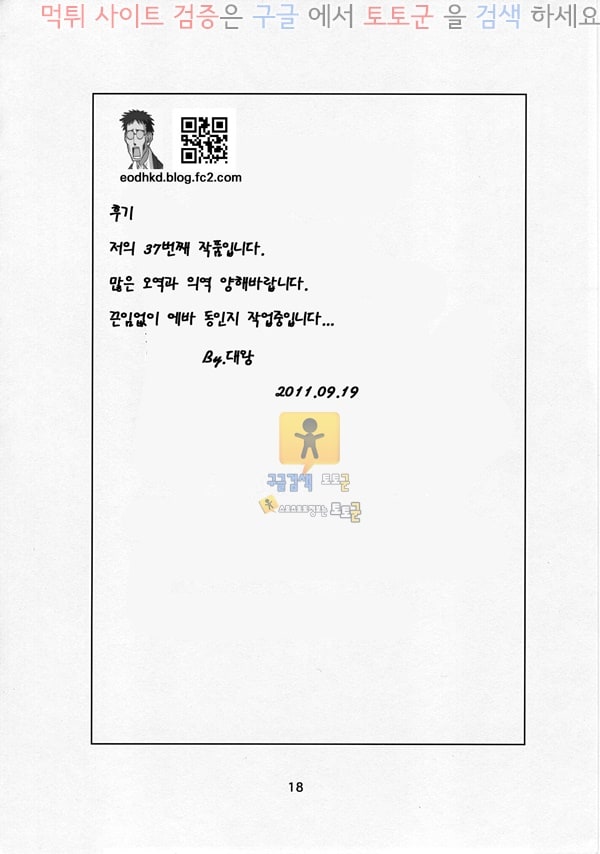 먹튀 사이트 검증은 구글 에서 토토군 을 검색 하세요
eodhkd.blog.fc2.com
후기
저의 37번째 작품입니다.
많은 오역과 의역 양해바랍니다.
끈임없이 에바 동인지 작업중입니다...
By.대왕
2011.09.19
구글검색 토토군
스포츠토토정보는 토토군
18